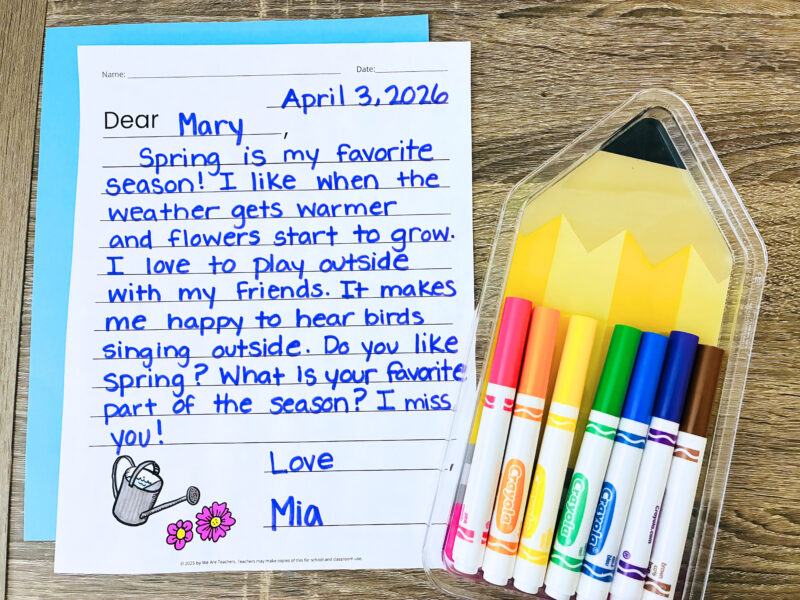 Name: Date:
April 3, 2026
Dear Mary,
Spring is my favorite
season! I like when the
weather gets warmer
and flowers start to grow.
I love to play outside
with my friends. It makes
me happy to hear birds
singing outside. Do you like
spring? What is your favorite
part of the season? I miss
you!
Love,
Mia
© 2025 by We Are Teachers. Teachers may make copies of this for school and classroom use.
Crayola
Crayola
Crayola
Crayola